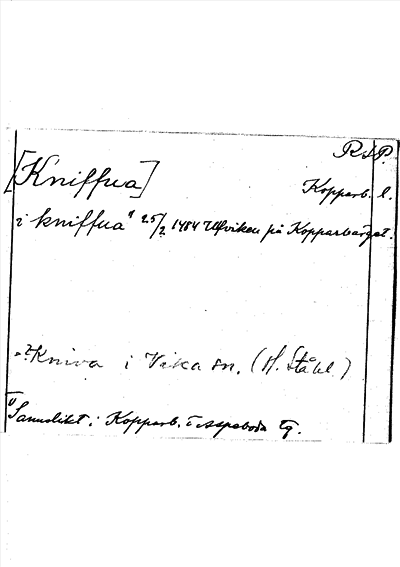 RAP.
[Kniffua]
Kopparb. l.
i kniffua¹⁾ 25/2 1484 Ulviken på Kopparbärget.
=? Kniva i Vika sn. (H. Ståhl.)
1) Sannolikt i Kopparb. o. Aspeboda tg.